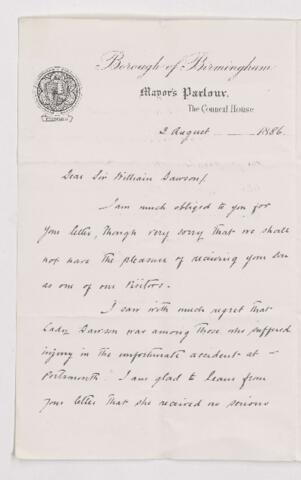 Borough of Birmingham
Mayor's Parlour,
The Council House
2 August 1886.
Dear Sir William Dawson/
I am much obliged to you for
your letter, though very sorry that we shall
not have the pleasure of receiving your son
as one of our visitors.
I saw with much regret that
Lady Dawson was among those who suffered
injury in the unfortunate accident at
Portsmouth. I am glad to learn from
your letter that she received no serious